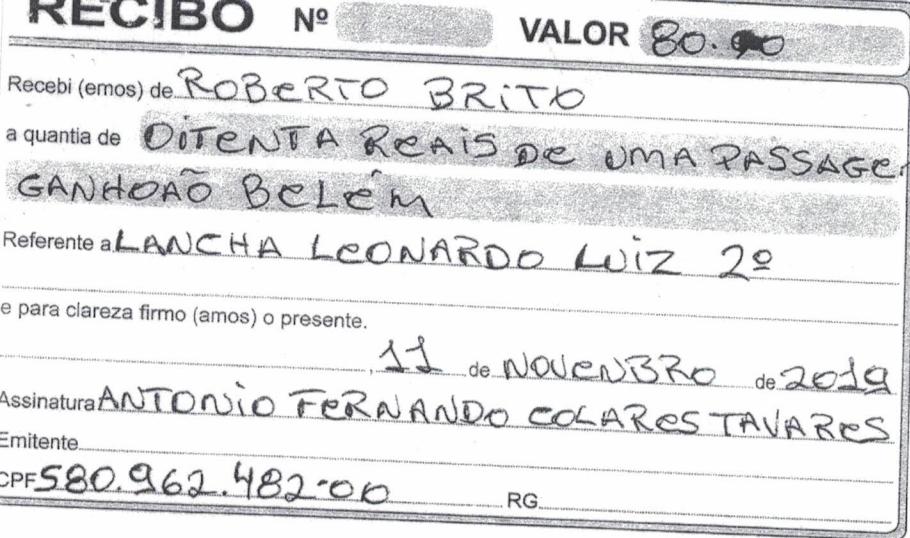 RECIBO Nº VALOR 80.00
Recebi (emos) de ROBERTO BRITO
a quantia de OITENTA REAIS DE UMA PASSAGE
GANHOÃO BELÉM
Referente a LANCHA LEONARDO LUIZ 2º
e para clareza firmo (amos) o presente.
, 11 de NOVENBRO de 2019
Assinatura ANTONIO FERNANDO COLARES TAVARES
Emitente
CPF 580.962.482-00 RG